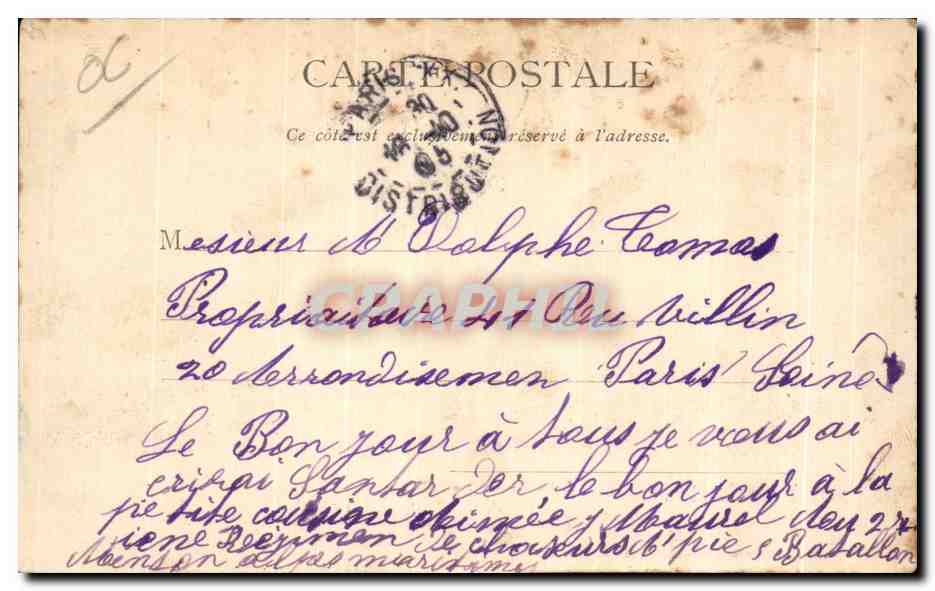 CARTE POSTALE
Ce côté est exclusivement réservé à l'adresse.
PARIS
30
10
05
DISTRIBUTION
Mesieur A Dolphe Tomas
Propriaitaire 47 Ru Villin
20 Arrondisemen Paris Seine
Le Bon jour à tous je vous ai
crirai Santar der le bon jour à la
petite cousine Aimée
Regimen de chaseurs A pie Batallon
Menton Alpes maritames
CPAPHIL